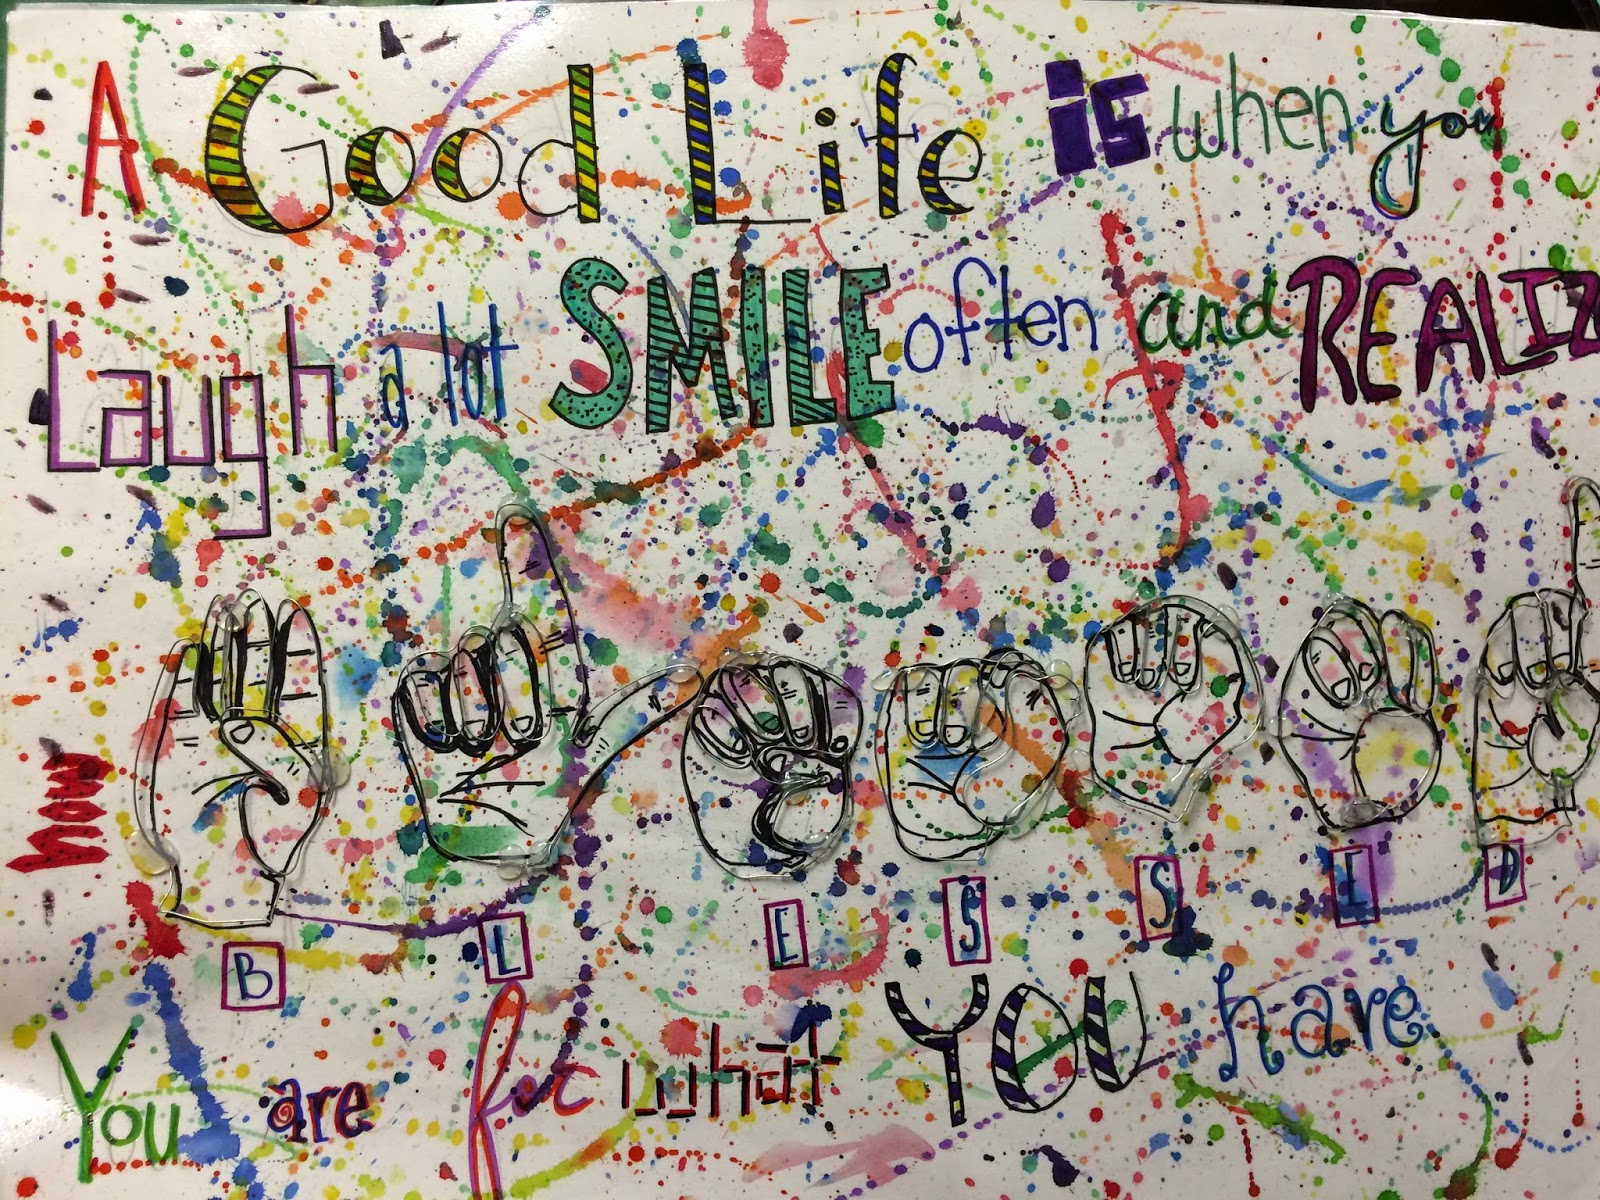 A Good Life is when you
Laugh a lot SMILE often and REALIZ
how
B L E S S E D
You are for what YOU have